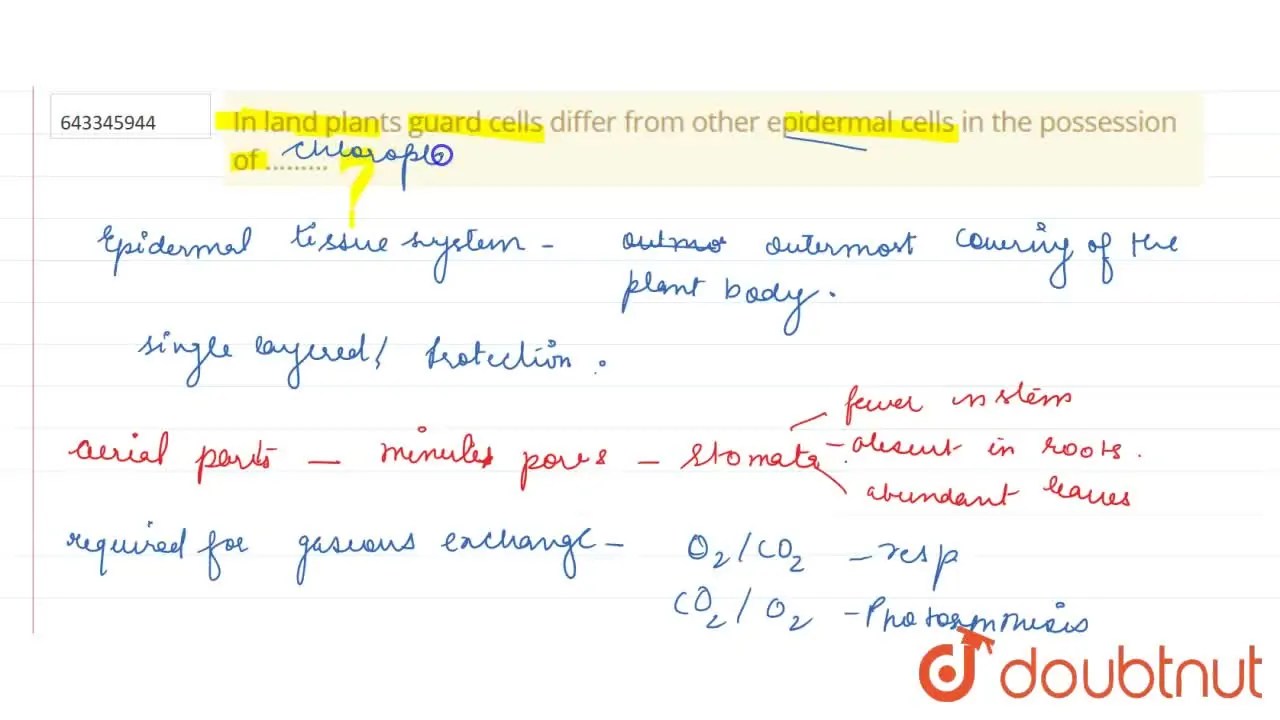 643345944
In land plants guard cells differ from other epidermal cells in the possession
of ......... chloropla
?
Epidermal tissue system - outermost covering of the
plant body.
single layered / Protection.
aerial parts - minutes pores - stomata - fewer in stem
- absent in roots.
abundant leaves
required for gaseous exchange - O2/CO2 - resp
CO2/O2 - Photosynthesis
doubtnut